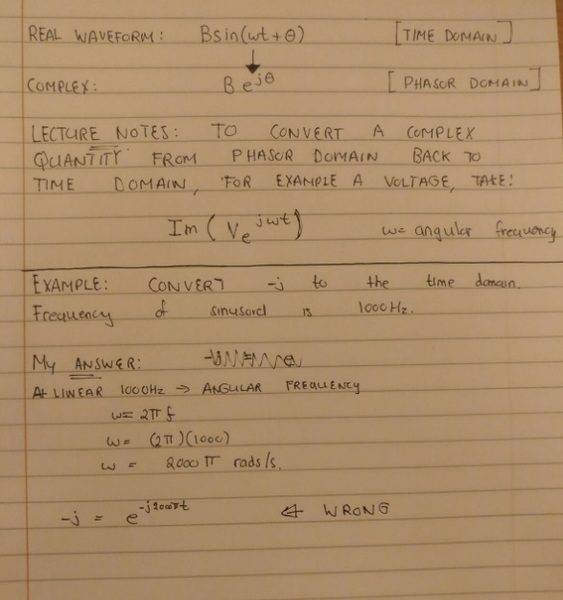 REAL WAVEFORM: Bsin(ωt + θ) [TIME DOMAIN]
COMPLEX: B e^jθ [PHASOR DOMAIN]
LECTURE NOTES: TO CONVERT A COMPLEX
QUANTITY FROM PHASOR DOMAIN BACK TO
TIME DOMAIN, FOR EXAMPLE A VOLTAGE, TAKE:
Im(Ve^jωt) ω= angular frequency
EXAMPLE: CONVERT -j to the time domain.
Frequency of sinusoid is 1000Hz.
MY ANSWER:
At LINEAR 1000Hz → ANGULAR FREQUENCY
ω= 2πf
ω= (2π)(1000)
ω = 2000π rads/s.
-j = e^-j2000πt ← WRONG